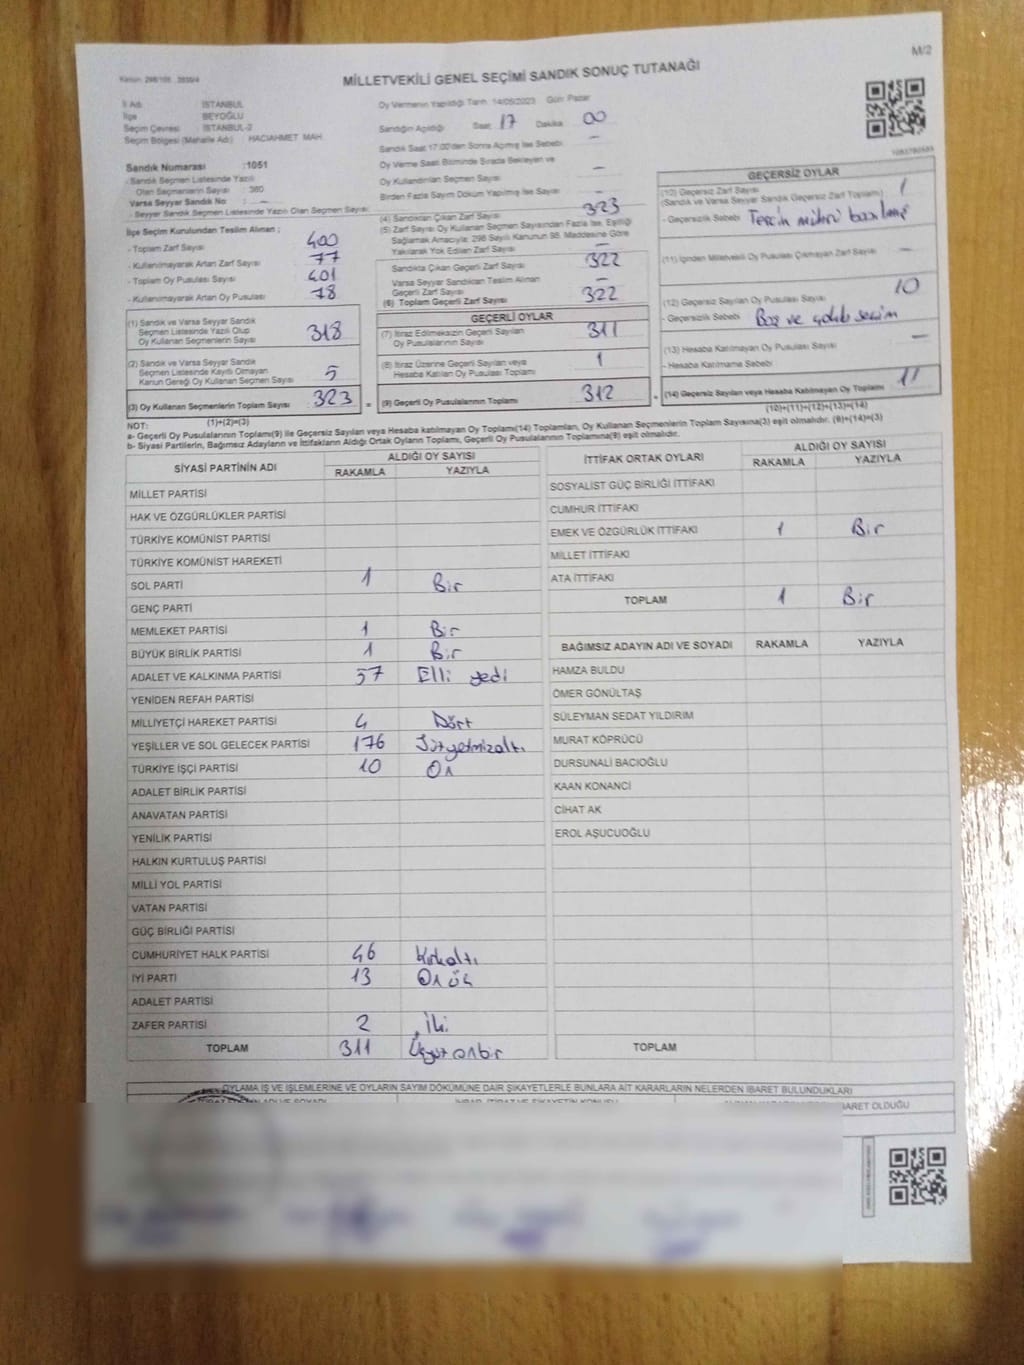 M/2
Kanun: 298/105 , 2839/4
MİLLETVEKİLİ GENEL SEÇİMİ SANDIK SONUÇ TUTANAĞI
İl Adı : İSTANBUL
İlçe : BEYOĞLU
Seçim Çevresi : İSTANBUL-2
Seçim Bölgesi (Mahalle Adı) : HACIAHMET MAH.
Sandık Numarası : 1051
- Sandık Seçmen Listesinde Yazılı
Olan Seçmenlerin Sayısı : 380
Varsa Seyyar Sandık No : —
- Seyyar Sandık Seçmen Listesinde Yazılı Olan Seçmen Sayısı:
İlçe Seçim Kurulundan Teslim Alınan :
- Toplam Zarf Sayısı 400
- Kullanılmayarak Artan Zarf Sayısı 77
- Toplam Oy Pusulası Sayısı 401
- Kullanılmayarak Artan Oy Pusulası 78
(1) Sandık ve Varsa Seyyar Sandık
Seçmen Listesinde Yazılı Olup
Oy Kullanan Seçmenlerin Sayısı 318
(2) Sandık ve Varsa Seyyar Sandık
Seçmen Listesinde Kayıtlı Olmayan
Kanun Gereği Oy Kullanan Seçmen Sayısı 5
(3) Oy Kullanan Seçmenlerin Toplam Sayısı 323 =
(1)+(2)=(3)
Oy Vermenin Yapıldığı Tarih: 14/05/2023 Gün: Pazar
Sandığın Açıldığı Saat: 17 Dakika: 00
Sandık Saat 17:00'den Sonra Açılmış İse Sebebi: —
Oy Verme Saati Bitiminde Sırada Bekleyen ve
Oy Kullandırılan Seçmen Sayısı —
Birden Fazla Sayım Döküm Yapılmış İse Sayısı —
(4) Sandıktan Çıkan Zarf Sayısı 323
(5) Zarf Sayısı Oy Kullanan Seçmen Sayısından Fazla İse, Eşitliği
Sağlamak Amacıyla; 298 Sayılı Kanunun 98. Maddesine Göre
Yakılarak Yok Edilen Zarf Sayısı —
Sandıkta Çıkan Geçerli Zarf Sayısı 322
Varsa Seyyar Sandıktan Teslim Alınan
Geçerli Zarf Sayısı —
(6) Toplam Geçerli Zarf Sayısı 322
GEÇERLİ OYLAR
(7) İtiraz Edilmeksizin Geçerli Sayılan
Oy Pusulalarının Sayısı 311
(8) İtiraz Üzerine Geçerli Sayılan veya
Hesaba Katılan Oy Pusulası Toplamı 1
(9) Geçerli Oy Pusulalarının Toplamı 312 +
GEÇERSİZ OYLAR
(10) Geçersiz Zarf Sayısı 1
(Sandık ve Varsa Seyyar Sandık Geçersiz Zarf Toplamı)
- Geçersizlik Sebebi Tercih mührü basılmış
(11) İçinden Milletvekili Oy Pusulası Çıkmayan Zarf Sayısı —
(12) Geçersiz Sayılan Oy Pusulası Sayısı 10
- Geçersizlik Sebebi Boş ve çoklu seçim
(13) Hesaba Katılmayan Oy Pusulası Sayısı —
- Hesaba Katılmama Sebebi
(14) Geçersiz Sayılan veya Hesaba Katılmayan Oy Toplamı 11
(10)+(11)+(12)+(13)=(14)
NOT:
a- Geçerli Oy Pusulalarının Toplamı(9) ile Geçersiz Sayılan veya Hesaba Katılmayan Oy Toplamı(14) Toplamları, Oy Kullanan Seçmenlerin Toplam Sayısına(3) eşit olmalıdır. (9)+(14)=(3)
b- Siyasi Partilerin, Bağımsız Adayların ve İttifakların Aldığı Ortak Oyların Toplamı, Geçerli Oy Pusulalarının Toplamına(9) eşit olmalıdır.
SİYASİ PARTİNİN ADI ALDIĞI OY SAYISI
RAKAMLA YAZIYLA
MİLLET PARTİSİ
HAK VE ÖZGÜRLÜKLER PARTİSİ
TÜRKİYE KOMÜNİST PARTİSİ
TÜRKİYE KOMÜNİST HAREKETİ
SOL PARTİ 1 Bir
GENÇ PARTİ
MEMLEKET PARTİSİ 1 Bir
BÜYÜK BİRLİK PARTİSİ 1 Bir
ADALET VE KALKINMA PARTİSİ 57 Elli yedi
YENİDEN REFAH PARTİSİ
MİLLİYETÇİ HAREKET PARTİSİ 4 Dört
YEŞİLLER VE SOL GELECEK PARTİSİ 176 Yüzyetmişaltı
TÜRKİYE İŞÇİ PARTİSİ 10 On
ADALET BİRLİK PARTİSİ
ANAVATAN PARTİSİ
YENİLİK PARTİSİ
HALKIN KURTULUŞ PARTİSİ
MİLLİ YOL PARTİSİ
VATAN PARTİSİ
GÜÇ BİRLİĞİ PARTİSİ
CUMHURİYET HALK PARTİSİ 46 Kırkaltı
İYİ PARTİ 13 On üç
ADALET PARTİSİ
ZAFER PARTİSİ 2 İki
TOPLAM 311 Üçyüz onbir
İTTİFAK ORTAK OYLARI ALDIĞI OY SAYISI
RAKAMLA YAZIYLA
SOSYALİST GÜÇ BİRLİĞİ İTTİFAKI
CUMHUR İTTİFAKI
EMEK VE ÖZGÜRLÜK İTTİFAKI 1 Bir
MİLLET İTTİFAKI
ATA İTTİFAKI
TOPLAM 1 Bir
BAĞIMSIZ ADAYIN ADI VE SOYADI RAKAMLA YAZIYLA
HAMZA BULDU
ÖMER GÖNÜLTAŞ
SÜLEYMAN SEDAT YILDIRIM
MURAT KÖPRÜCÜ
DURSUNALİ BACIOĞLU
KAAN KONANCİ
CİHAT AK
EROL AŞUCUOĞLU
TOPLAM
OYLAMA İŞ VE İŞLEMLERİNE VE OYLARIN SAYIM DÖKÜMÜNE DAİR ŞİKAYETLERLE BUNLARA AİT KARARLARIN NELERDEN İBARET BULUNDUKLARI